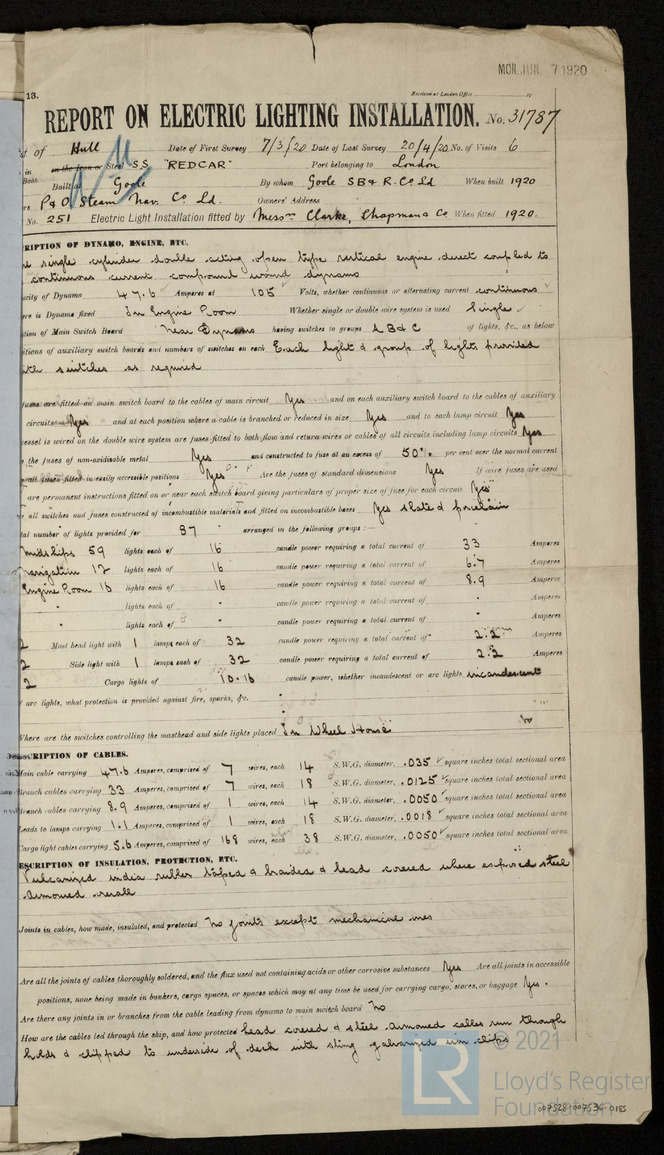 MON. JUN. 7 1920
13.
Received at London Office
REPORT ON ELECTRIC LIGHTING INSTALLATION. No. 31787
t of Hull Date of First Survey 7/3/20 Date of Last Survey 20/4/20 No. of Visits 6
on the Iron or Steel S.S. "REDCAR" Port belonging to London
Built at Goole By whom Goole S.B & R. Co Ld When built 1920
P & O Steam Nav. Co Ld. Owners' Address
No. 251 Electric Light Installation fitted by Messrs Clarke, Chapman & Co When fitted 1920.
RIPTION OF DYNAMO, ENGINE, ETC.
single cylinder double acting open type vertical engine direct coupled to
continuous current compound wound dynamo
acity of Dynamo 47.6 Amperes at 105 Volts, whether continuous or alternating current continuous
ere is Dynamo fixed In Engine Room Whether single or double wire system is used Single
ition of Main Switch Board Near Dynamo having switches to groups A B & C of lights, &c., as below
itions of auxiliary switch boards and numbers of switches on each Each light & group of lights provided
with switches as required
fuses are fitted on main switch board to the cables of main circuit Yes and on each auxiliary switch board to the cables of auxiliary
circuits Yes and at each position where a cable is branched or reduced in size Yes and to each lamp circuit Yes
vessel is wired on the double wire system are fuses fitted to both flow and return wires or cables of all circuits including lamp circuits Yes
the fuses of non-oxidisable metal Yes and constructed to fuse at an excess of 50% per cent over the normal current
all fuses fitted in easily accessible positions Yes Are the fuses of standard dimensions Yes If wire fuses are used
are permanent instructions fitted on or near each switch board giving particulars of proper size of fuse for each circuit Yes
all switches and fuses constructed of incombustible materials and fitted on incombustible bases Yes slate & porcelain
tal number of lights provided for 87 arranged in the following groups :—
Midships 59 lights each of 16 candle power requiring a total current of 33 Amperes
Navigation 12 lights each of 16 candle power requiring a total current of 6.7 Amperes
Engine Room 16 lights each of 16 candle power requiring a total current of 8.9 Amperes
lights each of candle power requiring a total current of Amperes
lights each of candle power requiring a total current of Amperes
2 Mast head light with 1 lamps each of 32 candle power requiring a total current of 2.2 Amperes
2 Side light with 1 lamps each of 32 candle power requiring a total current of 2.2 Amperes
2 Cargo lights of 10.16 candle power, whether incandescent or arc lights incandescent
f arc lights, what protection is provided against fire, sparks, &c.
Where are the switches controlling the masthead and side lights placed In Wheel House
DESCRIPTION OF CABLES.
Main cable carrying 47.6 Amperes, comprised of 7 wires, each 14 S.W.G. diameter, .035 square inches total sectional area
Branch cables carrying 33 Amperes, comprised of 7 wires, each 18 S.W.G. diameter, .0125 square inches total sectional area
Branch cables carrying 8.9 Amperes, comprised of 1 wires, each 14 S.W.G. diameter, .0050 square inches total sectional area
Leads to lamps carrying 1.1 Amperes, comprised of 1 wires, each 18 S.W.G. diameter, .0018 square inches total sectional area
Cargo light cables carrying 5.6 Amperes, comprised of 168 wires, each 38 S.W.G. diameter, .0050 square inches total sectional area
DESCRIPTION OF INSULATION, PROTECTION, ETC.
Vulcanized india rubber taped & braided & lead covered where exposed steel
armoured overall
Joints in cables, how made, insulated, and protected No joints except mechanical ones
Are all the joints of cables thoroughly soldered, and the flux used not containing acids or other corrosive substances Yes Are all joints in accessible
positions, none being made in bunkers, cargo spaces, or spaces which may at any time be used for carrying cargo, stores, or baggage Yes.
Are there any joints in or branches from the cable leading from dynamo to main switch board No
How are the cables led through the ship, and how protected Lead covered & steel armoured cables run through
holds & clipped to underside of deck with strong galvanized iron clips
© 2021
LR
Lloyd's Register
Foundation
007528-007536-0185